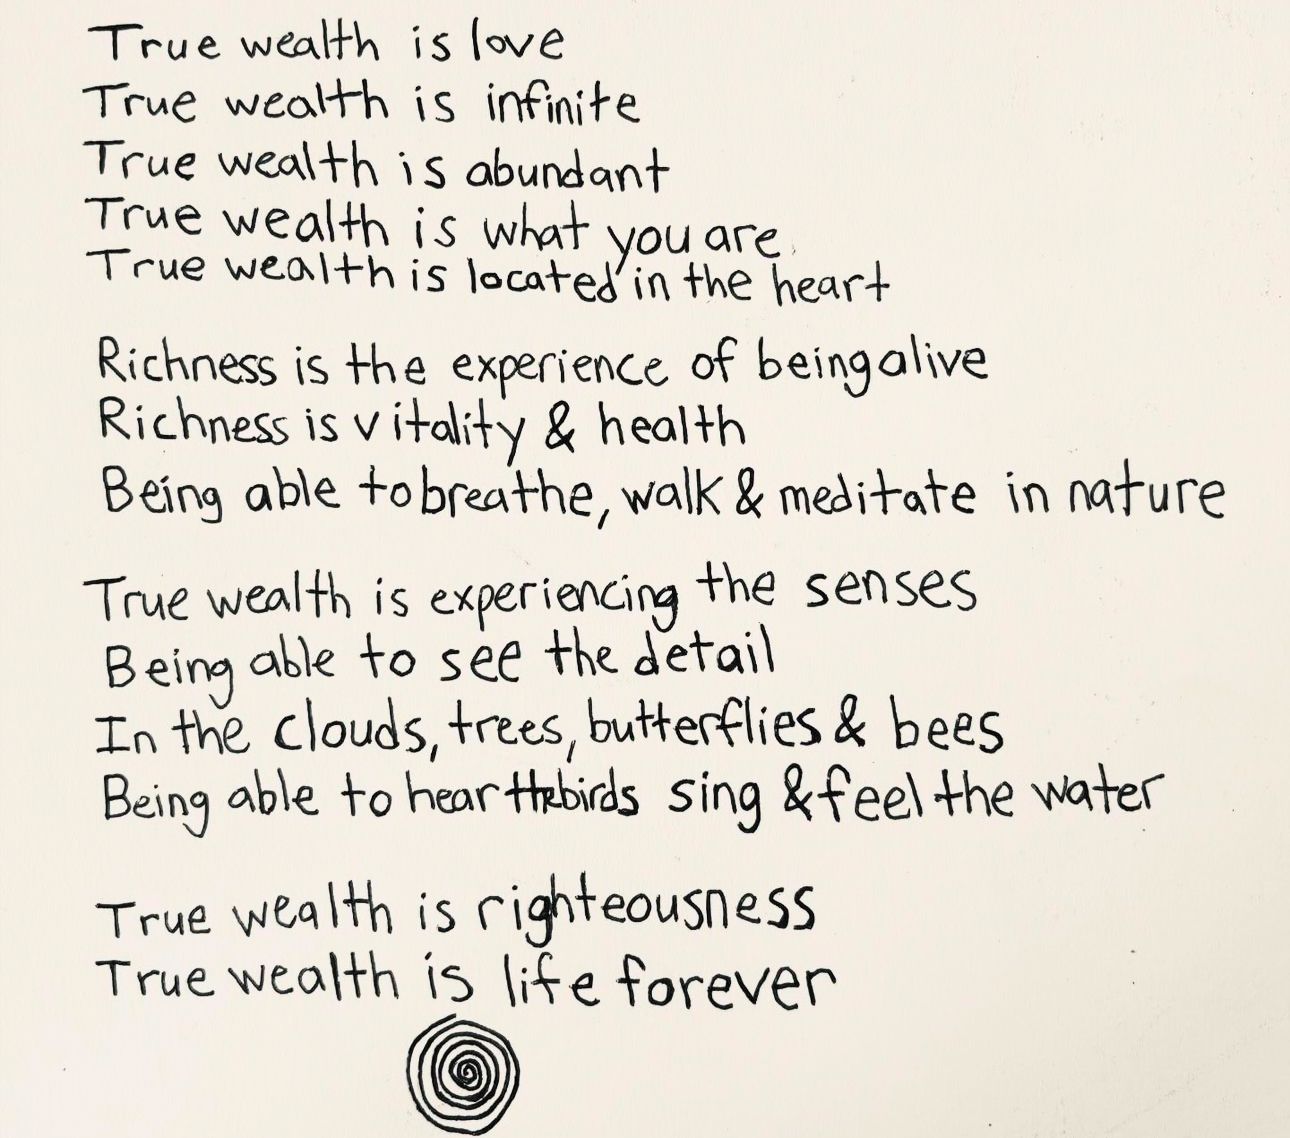 True wealth is love
True wealth is infinite
True wealth is abundant
True wealth is what you are
True wealth is located in the heart
Richness is the experience of being alive
Richness is vitality & health
Being able to breathe, walk & meditate in nature
True wealth is experiencing the senses
Being able to see the detail
In the clouds, trees, butterflies & bees
Being able to hear the birds sing & feel the water
True wealth is righteousness
True wealth is life forever